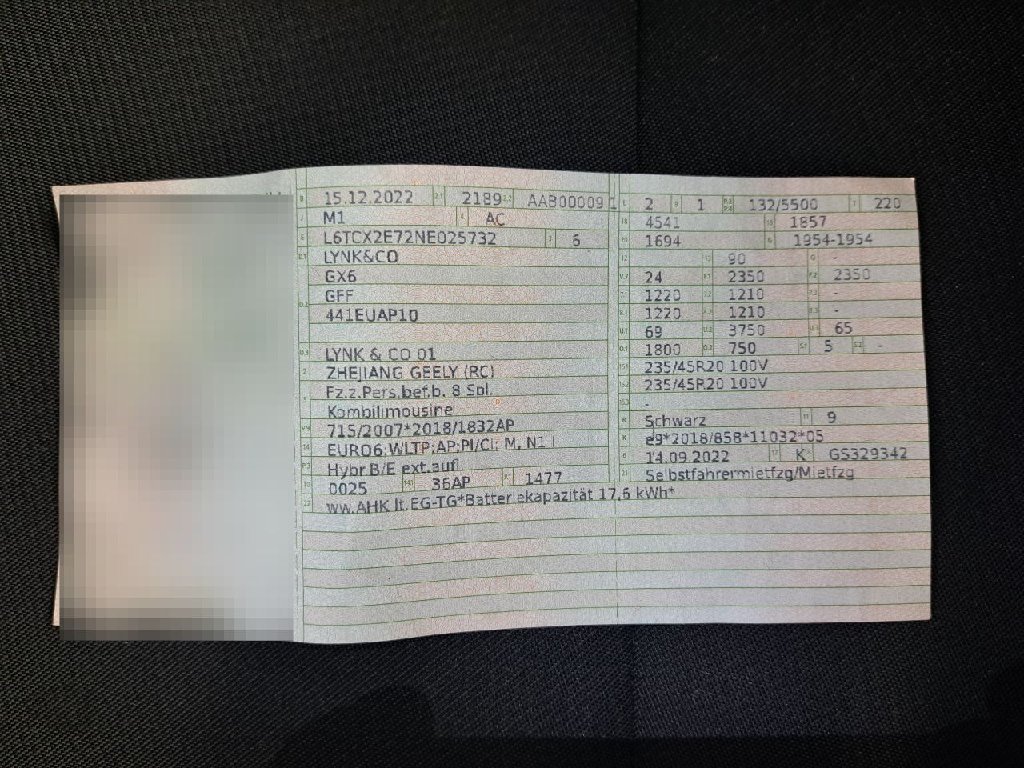 15.12.2022 2189 AAB00009 1
M1 AC
L6TCX2E72NE025732 6
LYNK&CO
GX6
GFF
441EUAP10
LYNK & CO 01
ZHEJIANG GEELY (RC)
Fz.z.Pers.bef.b. 8 Spl.
Kombilimousine
715/2007*2018/1832AP
EURO6;WLTP;AP;PI/CI; M, N1 I
Hybr.B/E ext.aufl
0025 36AP 1477
ww.AHK lt.EG-TG*Batteriekapazität 17,6 kWh*
2 1 132/5500 220
4541 1857
1694 1954-1954
90 -
24 2350 2350
1220 1210 -
1220 1210 -
69 3750 65
1800 750 5 -
235/45R20 100V
235/45R20 100V
-
Schwarz 9
e9*2018/858*11032*05
14.09.2022 K GS329342
Selbstfahrermietfzg/Mietfzg